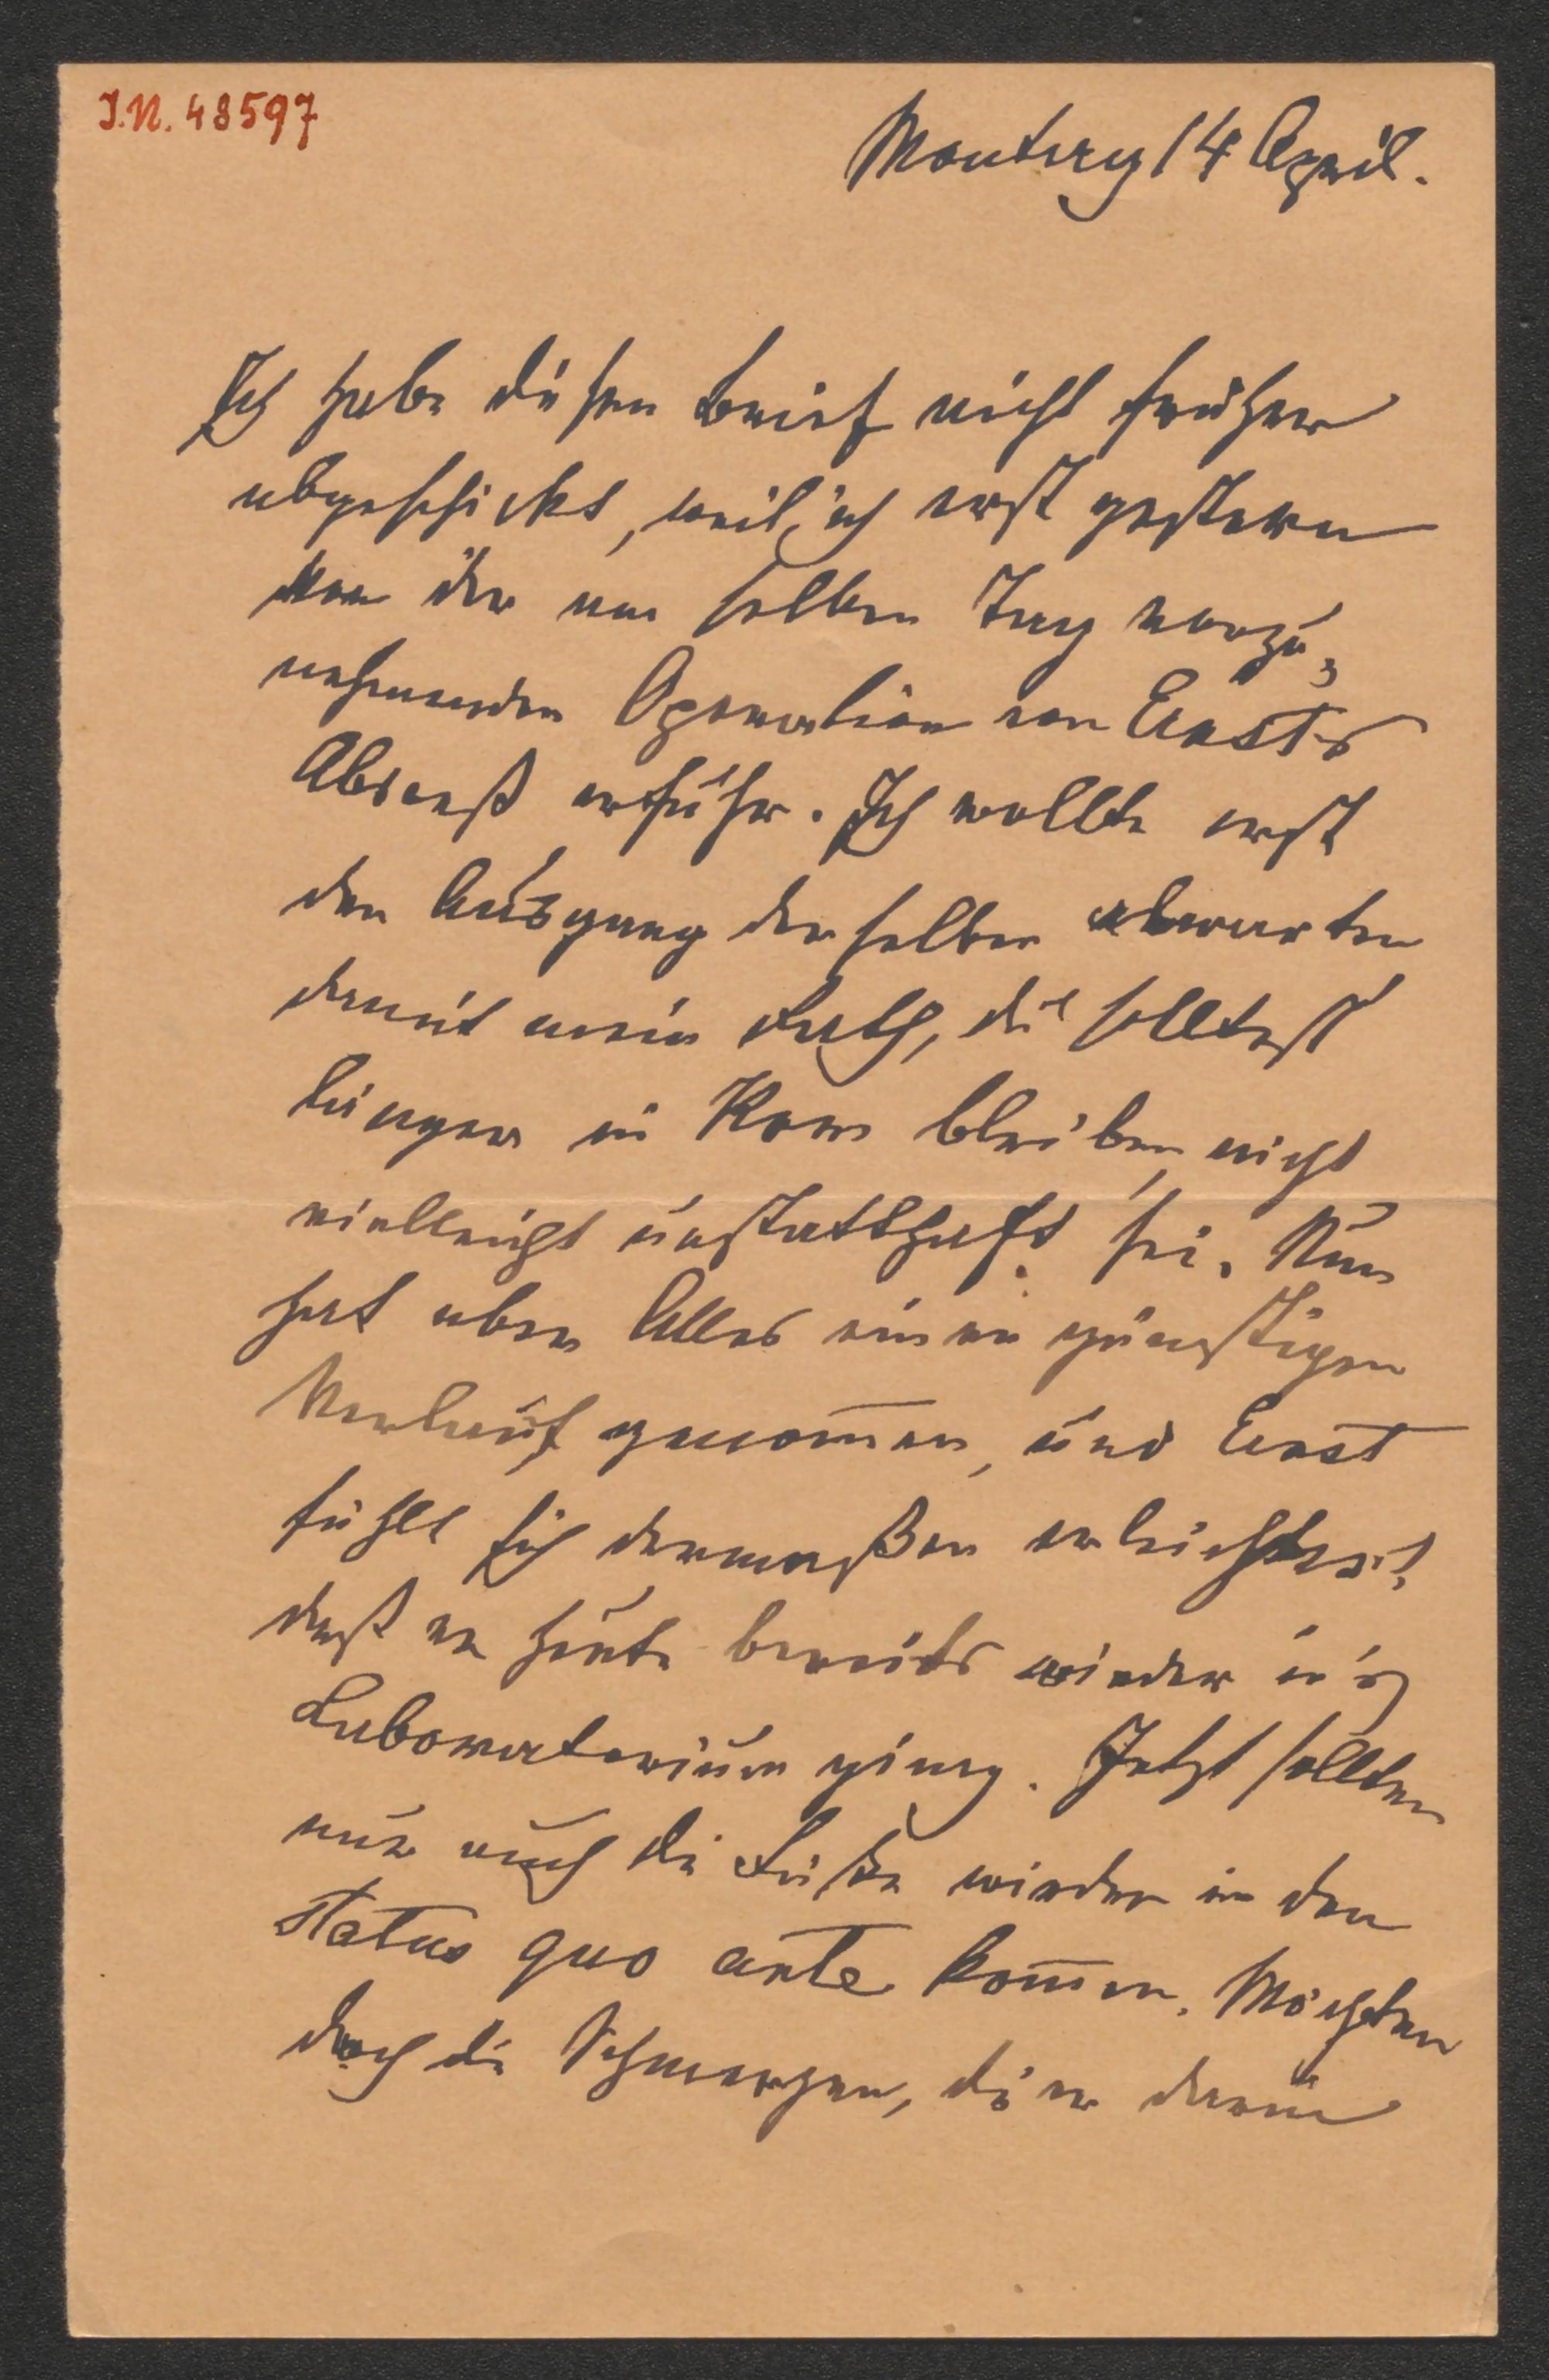 I.N. 48597
Montag 14 April.
Ich habe diesen Brief nicht früher
abgeschickt, weil ich erst gestern
von der am selben Tag vorzu-
nehmenden Operation von Ernsts
Absceß erfuhr. Ich wollte erst
den Ausgang derselben abwarten
damit mein Rath, du solltest
länger in Rom bleiben, nicht
vielleicht unstatthaft sei. Nun
hat aber Alles einen günstigen
Verlauf genom̅en, und Ernst
fühlt sich dermaßen erleichtert,
daß er heute bereits wieder in's
Laboratorium ging. Jetzt sollten
nur auch die Füße wieder in den
status quo ante kom̅en. Möchten
doch die Schmerzen, die er darin